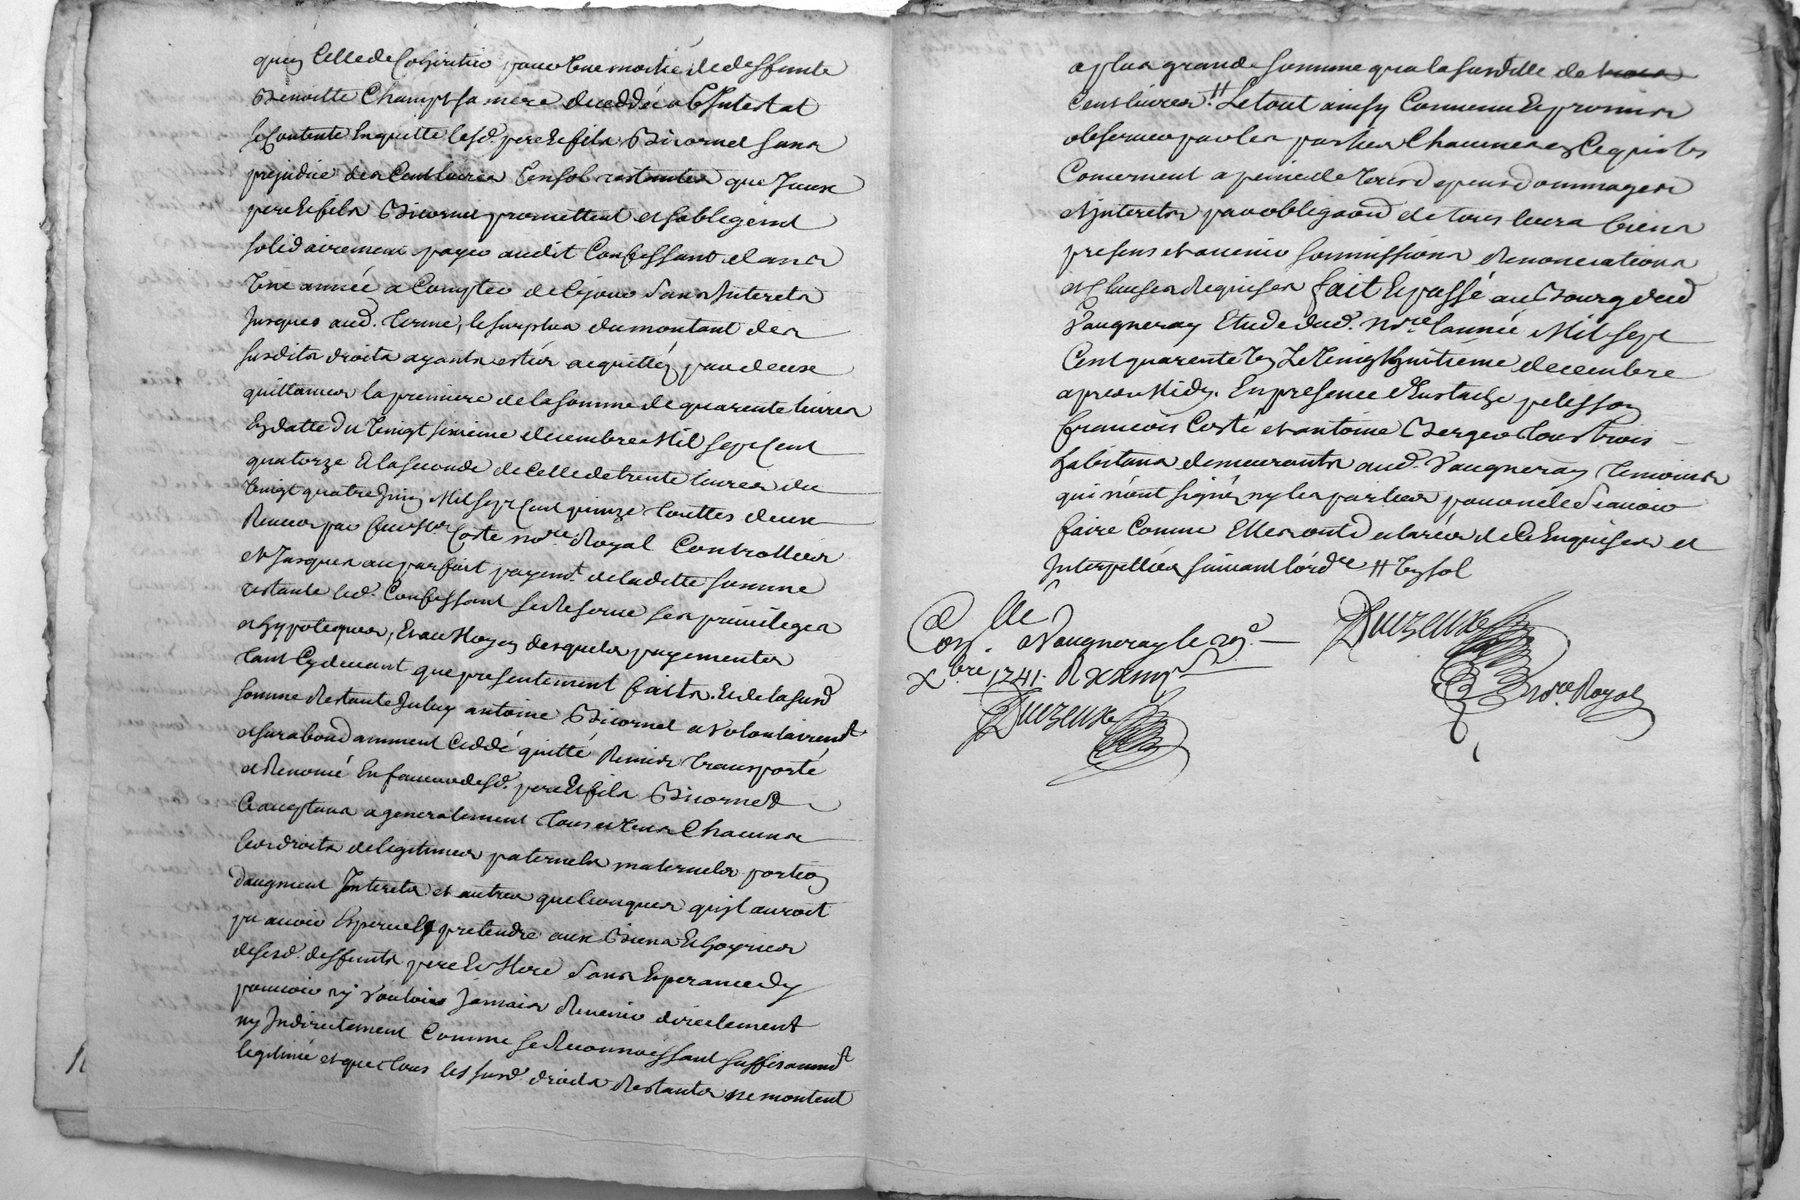 qu'en celle de cohéritier pour une moitié de deffunte
Benoitte Champt sa mere decedée abIntestat
se Contente en quitte lesd. pere et fils Bicornet sans
prejudice des Cent livres un sol restantes que Iceux
pere et fils Bicornet promettent et sobligent
solidairement payer audit Confessant dans
une année a Compter de ce jour sans Interets
Jusques aud. terme, le surplus du montant des
susdits droits ayants estés acquittés par deux
quittances la premiere de la somme de quarente livres
En datte du vingt sixieme decembre Mil sept Cent
quatorze Et la seconde de celle de trente livres du
vingt quatre Juin Mil sept Cent quinze touttes deux
Receues par Coste nore Royal Controllées
et Jusques au parfait payemt. de ladette somme
restante led. Confessant se Reserve ses privileges
et hypoteques, Et au Moyen desquels payements
tant Cydevant que presentement faits. Et de la susd
somme Restante Iceluy antoine Bicornet a volontairemt
et surabondamment Ceddé quitté Remis transporté
et Renoncé En faveur desd. pere Et fils Bicornet
acceptans a generalement tous et uns Chacuns
les droits de legitimes paternels maternels portion
daugment Interets et autres quelconques qu'il auroit
pu avoir Esperer Et pretendre aux Biens Et hoyries
desesd. deffunts pere Et Mere sans Esperance d'y
pouvoir ny vouloir Jamais Revenir directement
ny Indirectement Comme se Reconnoissant suffisammt
legitimé et que tous les susd. droits Restants ne montent
a plus grande somme qua la susditte de
Cent livres # Le tout ainsy Convenu Et promis
observer par les parties Chacune en Ce qui les
Concernent a peine de tous depens dommages
et Interets par obligaond de tous leurs biens
presens et avenir soumissions Renonciations
et Clauses Requises fait Et passé au Bourg dud
Vaugneray Etude dud. nore l'année Mil sept
Cent quarente Un Le Vingt huitieme decembre
apres Midy. En presence d'Eustache pelisson
francois Coste et antoine Berger tous trois
habitans demeurants aud. Vaugneray temoins
qui n'ont signés ny les parties pour ne le scavoir
faire Comme Elles ont declarées de Ce Enquises et
Interpellées suivant lordce # Un sol
Conllé a Vaugneray le 29e
Xbre 1741. R
Duczeuxe
Duczeuxe
nore Royal